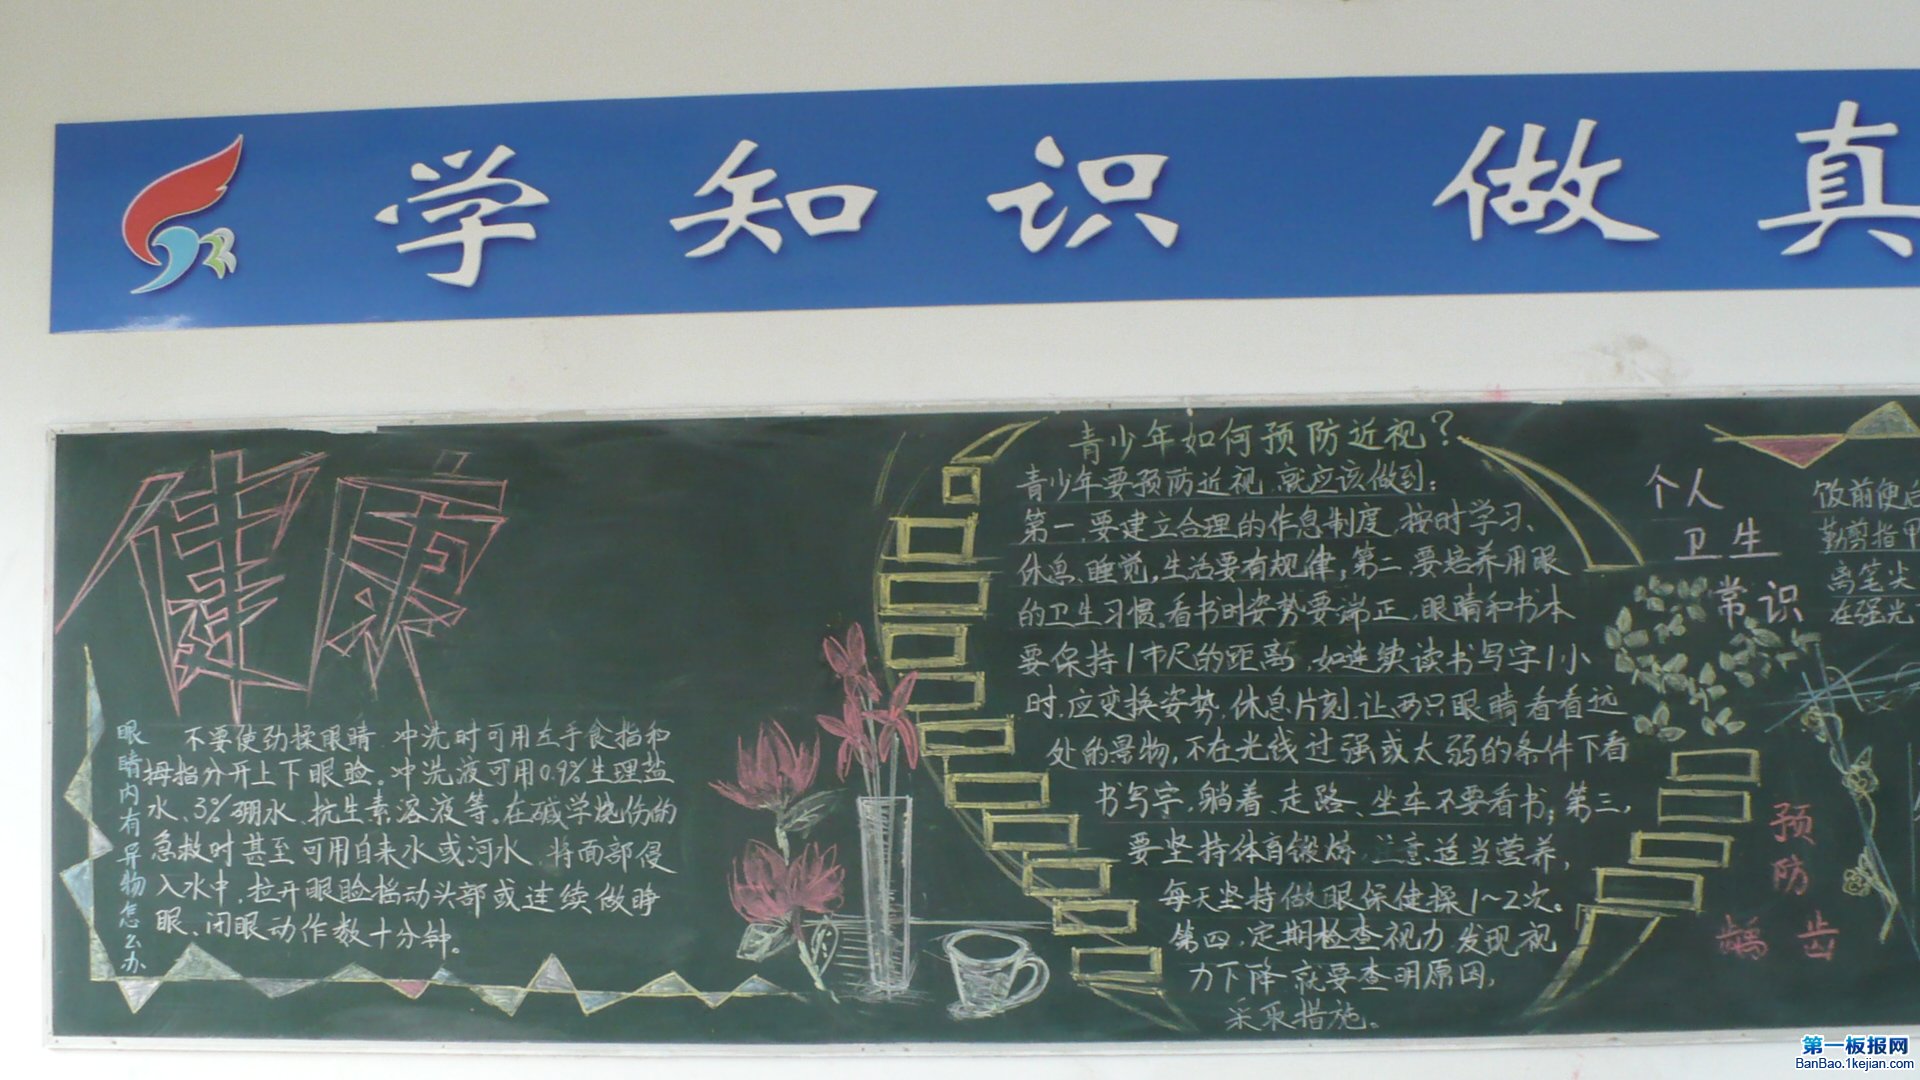 学知识 做真
健康
眼睛内有异物怎么办
不要使劲揉眼睛.冲洗时可用左手食指和
拇指分开上下眼睑。冲洗液可用0.9%生理盐
水、3%硼水、抗生素溶液等。在碱学烧伤的
急救时甚至可用自来水或河水.将面部侵
入水中,拉开眼睑摇动头部或连续做睁
眼、闭眼动作数十分钟。
青少年如何预防近视?
青少年要预防近视.就应该做到:
第一.要建立合理的作息制度.按时学习、
休息、睡觉,生活要有规律;第二.要培养用眼
的卫生习惯.看书时姿势要端正.眼睛和书本
要保持1市尺的距离.如连续读书写字1小
时.应变换姿势.休息片刻.让两只眼睛看看远
处的景物,不在光线过强或太弱的条件下看
书写字.躺着、走路、坐车不要看书;第三,
要坚持体育锻炼,注意适当营养,
每天坚持做眼保健操1~2次。
第四.定期检查视力.发现视
力下降就要查明原因,
采取措施。
个人
卫生
常识
饭前便后
勤剪指甲
离笔尖
在强光下
预
防
龋齿
第一板报网
BanBao.1kejian.com